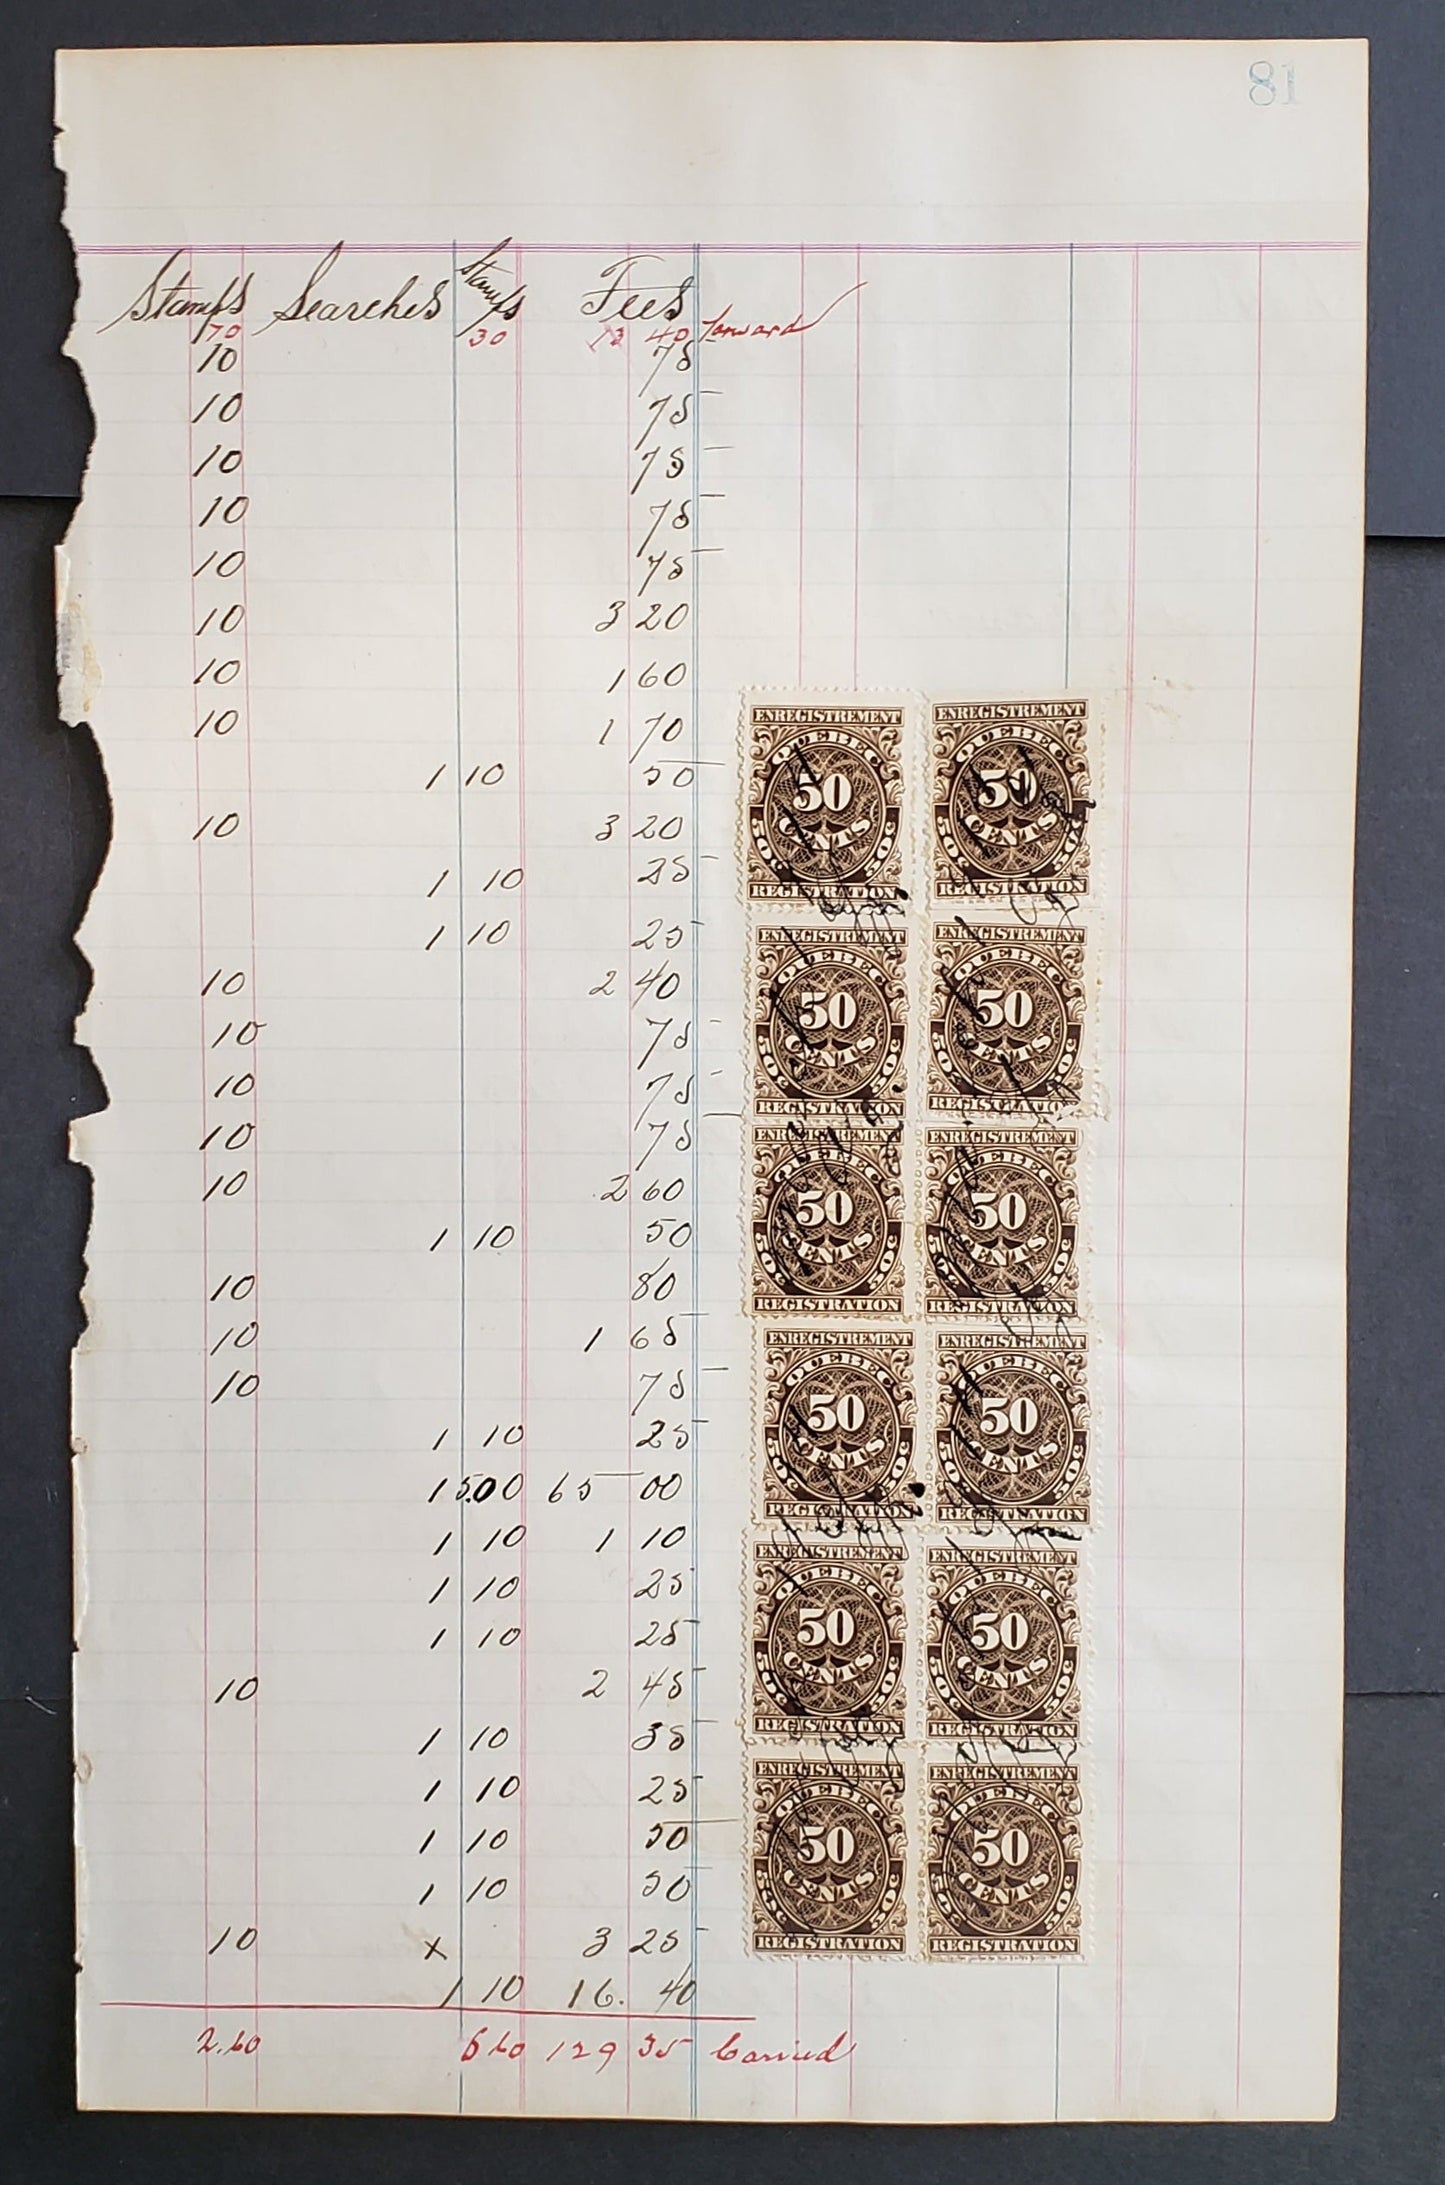 81
Stamps Searches Stamps Fees
70 30 13 40 forward
10 75
10 75
10 75
10 75
10 75
10 3 20
10 1 60
10 1 70
1 10 50
10 3 20
1 10 25
1 10 25
10 2 40
10 75
10 75
10 75
10 2 60
1 10 50
10 80
10 1 65
10 75
1 10 25
1 5.00 65 00
1 10 1 10
1 10 25
1 10 25
10 2 45
1 10 35
1 10 25
1 10 50
1 10 50
10 x 3 25
1 10 16. 40
2.60 6 60 129 35 Carried
ENREGISTREMENT
QUEBEC
50
CENTS
50¢ 50¢
REGISTRATION
ENREGISTREMENT
QUEBEC
50
CENTS
50¢ 50¢
REGISTRATION
ENREGISTREMENT
QUEBEC
50
CENTS
50¢ 50¢
REGISTRATION
ENREGISTREMENT
QUEBEC
50
CENTS
50¢ 50¢
REGISTRATION
ENREGISTREMENT
QUEBEC
50
CENTS
50¢ 50¢
REGISTRATION
ENREGISTREMENT
QUEBEC
50
CENTS
50¢ 50¢
REGISTRATION
ENREGISTREMENT
QUEBEC
50
CENTS
50¢ 50¢
REGISTRATION
ENREGISTREMENT
QUEBEC
50
CENTS
50¢ 50¢
REGISTRATION
ENREGISTREMENT
QUEBEC
50
CENTS
50¢ 50¢
REGISTRATION
ENREGISTREMENT
QUEBEC
50
CENTS
50¢ 50¢
REGISTRATION
ENREGISTREMENT
QUEBEC
50
CENTS
50¢ 50¢
REGISTRATION
ENREGISTREMENT
QUEBEC
50
CENTS
50¢ 50¢
REGISTRATION